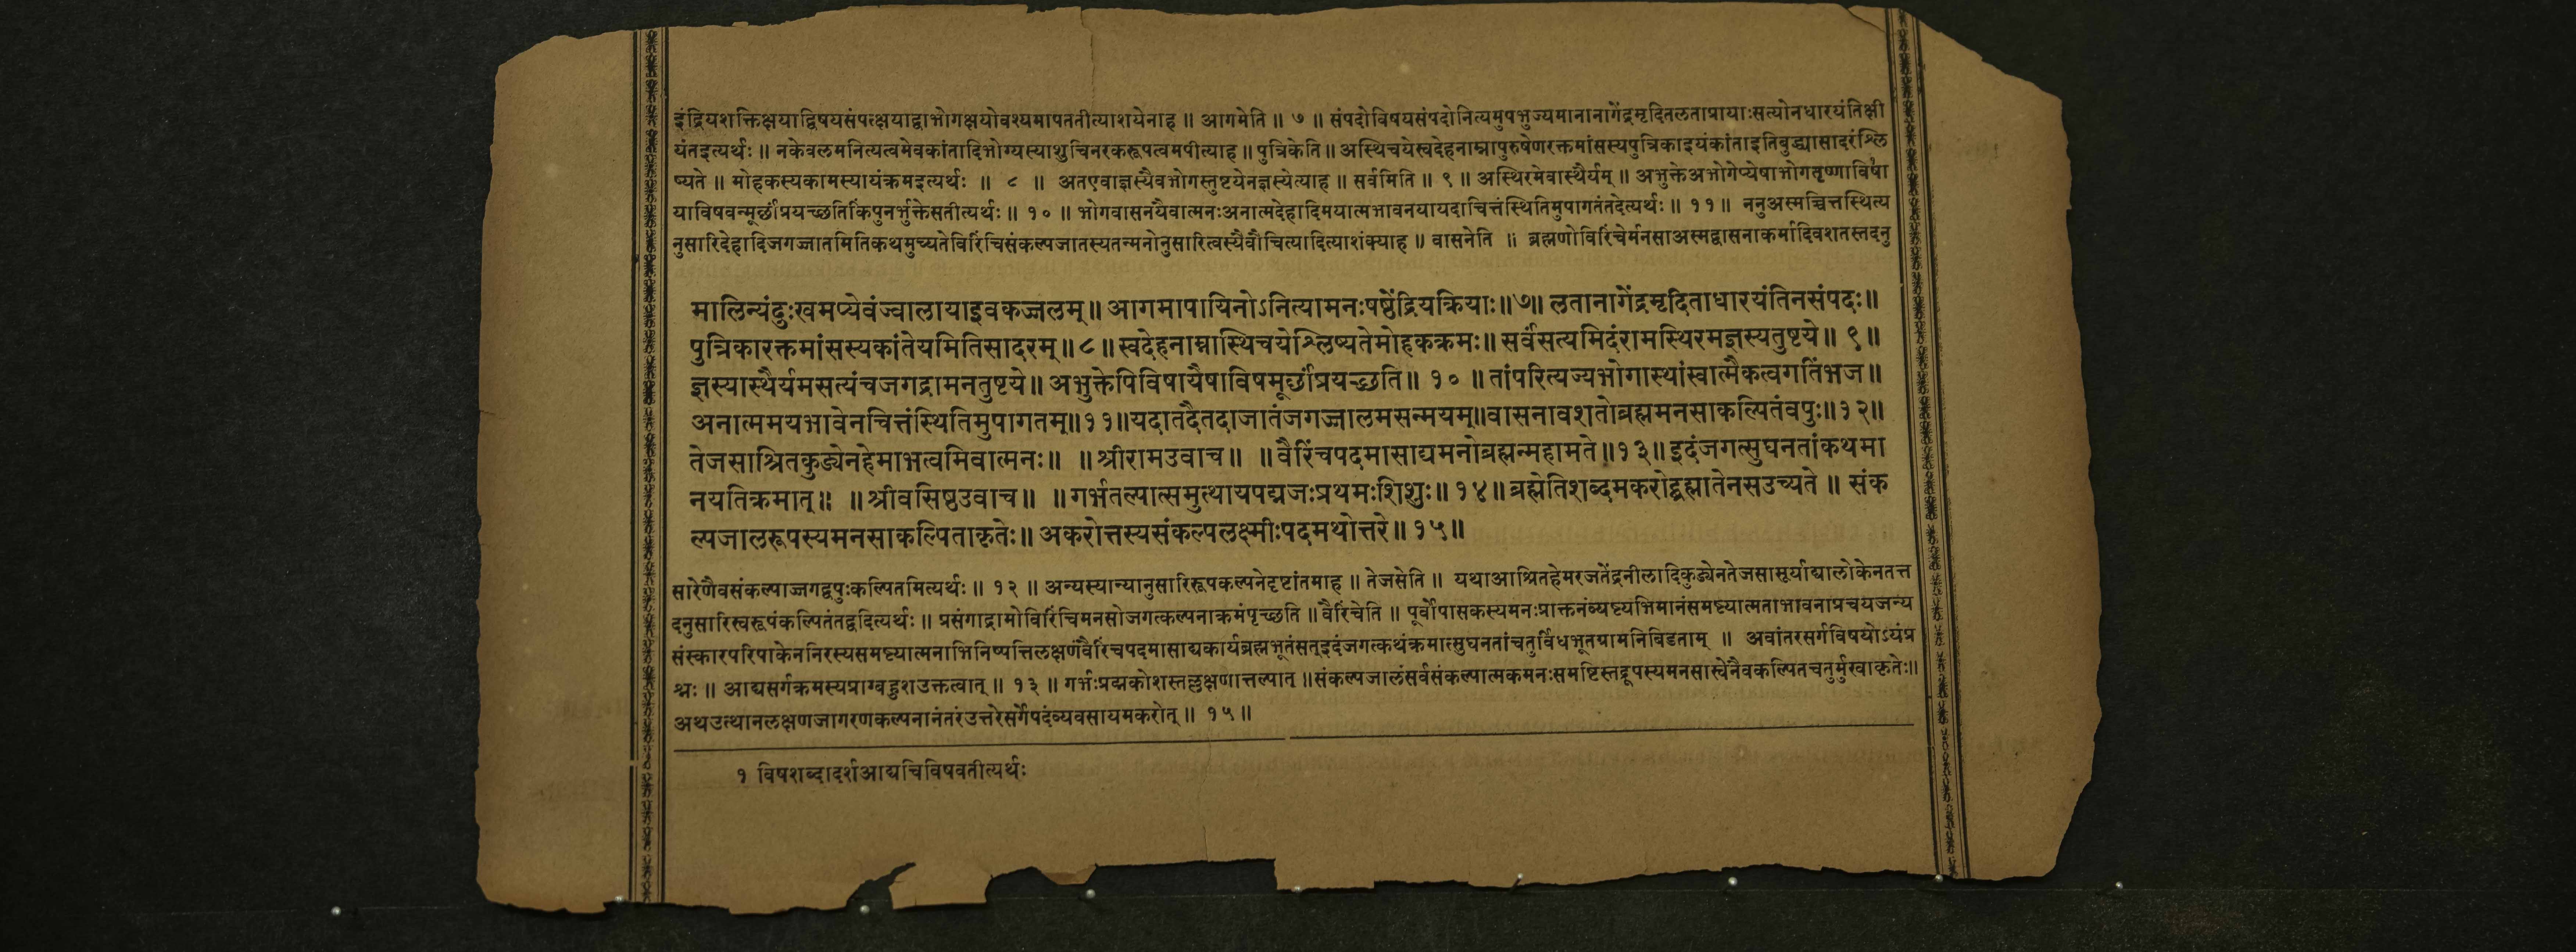 इंद्रियशक्तिक्षयाद्विषयसंपत्क्षयाद्वाभोगक्षयोवश्यमापततीत्याशयेनाह ॥ आगमेति ॥ ७ ॥ संपदोविषयसंपदोनित्यमुपभुज्यमानानागेंद्रमृदितलताप्रायाःसत्योनधारयंतिक्षी
यंतइत्यर्थः ॥ नकेवलमनित्यत्वमेवकांतादिभोग्यस्याशुचिनरकरूपत्वमपीत्याह ॥ पुत्रिकेति ॥ अस्थिचयेस्वदेहनाम्नापुरुषेणरक्तमांसस्यपुत्रिकाइयंकांताइतिबुद्ध्यासादरंश्लि
ष्यते ॥ मोहकस्यकामस्यायंक्रमइत्यर्थः ॥ ८ ॥ अतएवाज्ञस्यैवभोगस्तुष्टयेनज्ञस्येत्याह ॥ सर्वमिति ॥ ९ ॥ अस्थिरमेवास्थैर्यम् ॥ अभुक्तेअभोगेप्येषाभोगतृष्णाविषा
याविषवन्मूर्छांप्रयच्छतिकिंपुनर्भुक्तेसतीत्यर्थः ॥ १० ॥ भोगवासनयैवात्मनःअनात्मदेहादिमयात्मभावनयायदाचित्तंस्थितिमुपागतंतदेत्यर्थः ॥ ११ ॥ ननुअस्मच्चित्तस्थित्य
नुसारिदेहादिजगज्जातमितिकथमुच्यतेविरिंचिसंकल्पजातस्यतन्मनोनुसारित्वस्यैवौचित्यादित्याशंक्याह ॥ वासनेति ॥ ब्रह्मणोविरिंचेर्मनसाअस्मद्वासनाकर्मादिवशतस्तदनु
मालिन्यंदुःखमप्येवंज्वालायाइवकज्जलम् ॥ आगमापायिनोऽनित्यामनःषष्ठेंद्रियक्रियाः ॥ ७ ॥ लतानागेंद्रमृदिताधारयंतिनसंपदः ॥
पुत्रिकारक्तमांसस्यकांतेयमितिसादरम् ॥ ८ ॥ स्वदेहनाम्नास्थिचयेश्लिष्यतेमोहकक्रमः ॥ सर्वंसत्यमिदंरामस्थिरमज्ञस्यतुष्टये ॥ ९ ॥
ज्ञस्यास्थैर्यमसत्यंचजगद्रामनतुष्टये ॥ अभुक्तेपिविषायैषाविषमूर्छांप्रयच्छति ॥ १० ॥ तांपरित्यज्यभोगास्थांस्वात्मैकत्वगतिंभज ॥
अनात्ममयभावेनचित्तंस्थितिमुपागतम् ॥ ११ ॥ यदातदैतदाजातंजगज्जालमसन्मयम् ॥ वासनावशतोब्रह्ममनसाकल्पितंवपुः ॥ १२ ॥
तेजसाश्रितकुड्येनहेमाभत्वमिवात्मनः ॥ ॥ श्रीरामउवाच ॥ ॥ वैरिंचपदमासाद्यमनोब्रह्मन्महामते ॥ १३ ॥ इदंजगत्सुघनतांकथमा
नयतिक्रमात् ॥ ॥ श्रीवसिष्ठउवाच ॥ ॥ गर्भतल्पात्समुत्थायपद्मजःप्रथमःशिशुः ॥ १४ ॥ ब्रह्मेतिशब्दमकरोद्ब्रह्मातेनसउच्यते ॥ संक
ल्पजालरूपस्यमनसाकल्पिताकृतेः ॥ अकरोत्तस्यसंकल्पलक्ष्मीःपदमथोत्तरे ॥ १५ ॥
सारेणैवसंकल्पाज्जगद्वपुःकल्पितमित्यर्थः ॥ १२ ॥ अन्यस्यान्यानुसारिरूपकल्पनेदृष्टांतमाह ॥ तेजसेति ॥ यथाआश्रितहेमरजतेंद्रनीलादिकुड्येनतेजसासूर्याद्यालोकेनतत्त
दनुसारिस्वरूपंकल्पितंतद्वदित्यर्थः ॥ प्रसंगाद्रामोविरिंचिमनसोजगत्कल्पनाक्रमंपृच्छति ॥ वैरिंचेति ॥ पूर्वोपासकस्यमनःप्राक्तनंव्यष्ट्यभिमानंसमष्ट्यात्मताभावनाप्रचयजन्य
संस्कारपरिपाकेननिरस्यसमष्ट्यात्मनाभिनिष्पत्तिलक्षणंवैरिंचपदमासाद्यकार्यब्रह्मभूतंसत्इदंजगत्कथंक्रमात्सुघनतांचतुर्विधभूतग्रामनिबिडताम् ॥ अवांतरसर्गविषयोऽयंप्र
श्नः ॥ आद्यसर्गक्रमस्यप्राग्बहुशउक्तत्वात् ॥ १३ ॥ गर्भःप्रद्मकोशस्तल्लक्षणात्तल्पात् ॥ संकल्पजालंसर्वसंकल्पात्मकमनःसमष्टिस्तद्रूपस्यमनसास्वेनैवकल्पितचतुर्मुखाकृतेः ॥
अथउत्थानलक्षणजागरणकल्पनानंतरंउत्तरेसर्गेपदंव्यवसायमकरोत् ॥ १५ ॥
१ विषशब्दादर्शआद्यचिविषवतीत्यर्थः